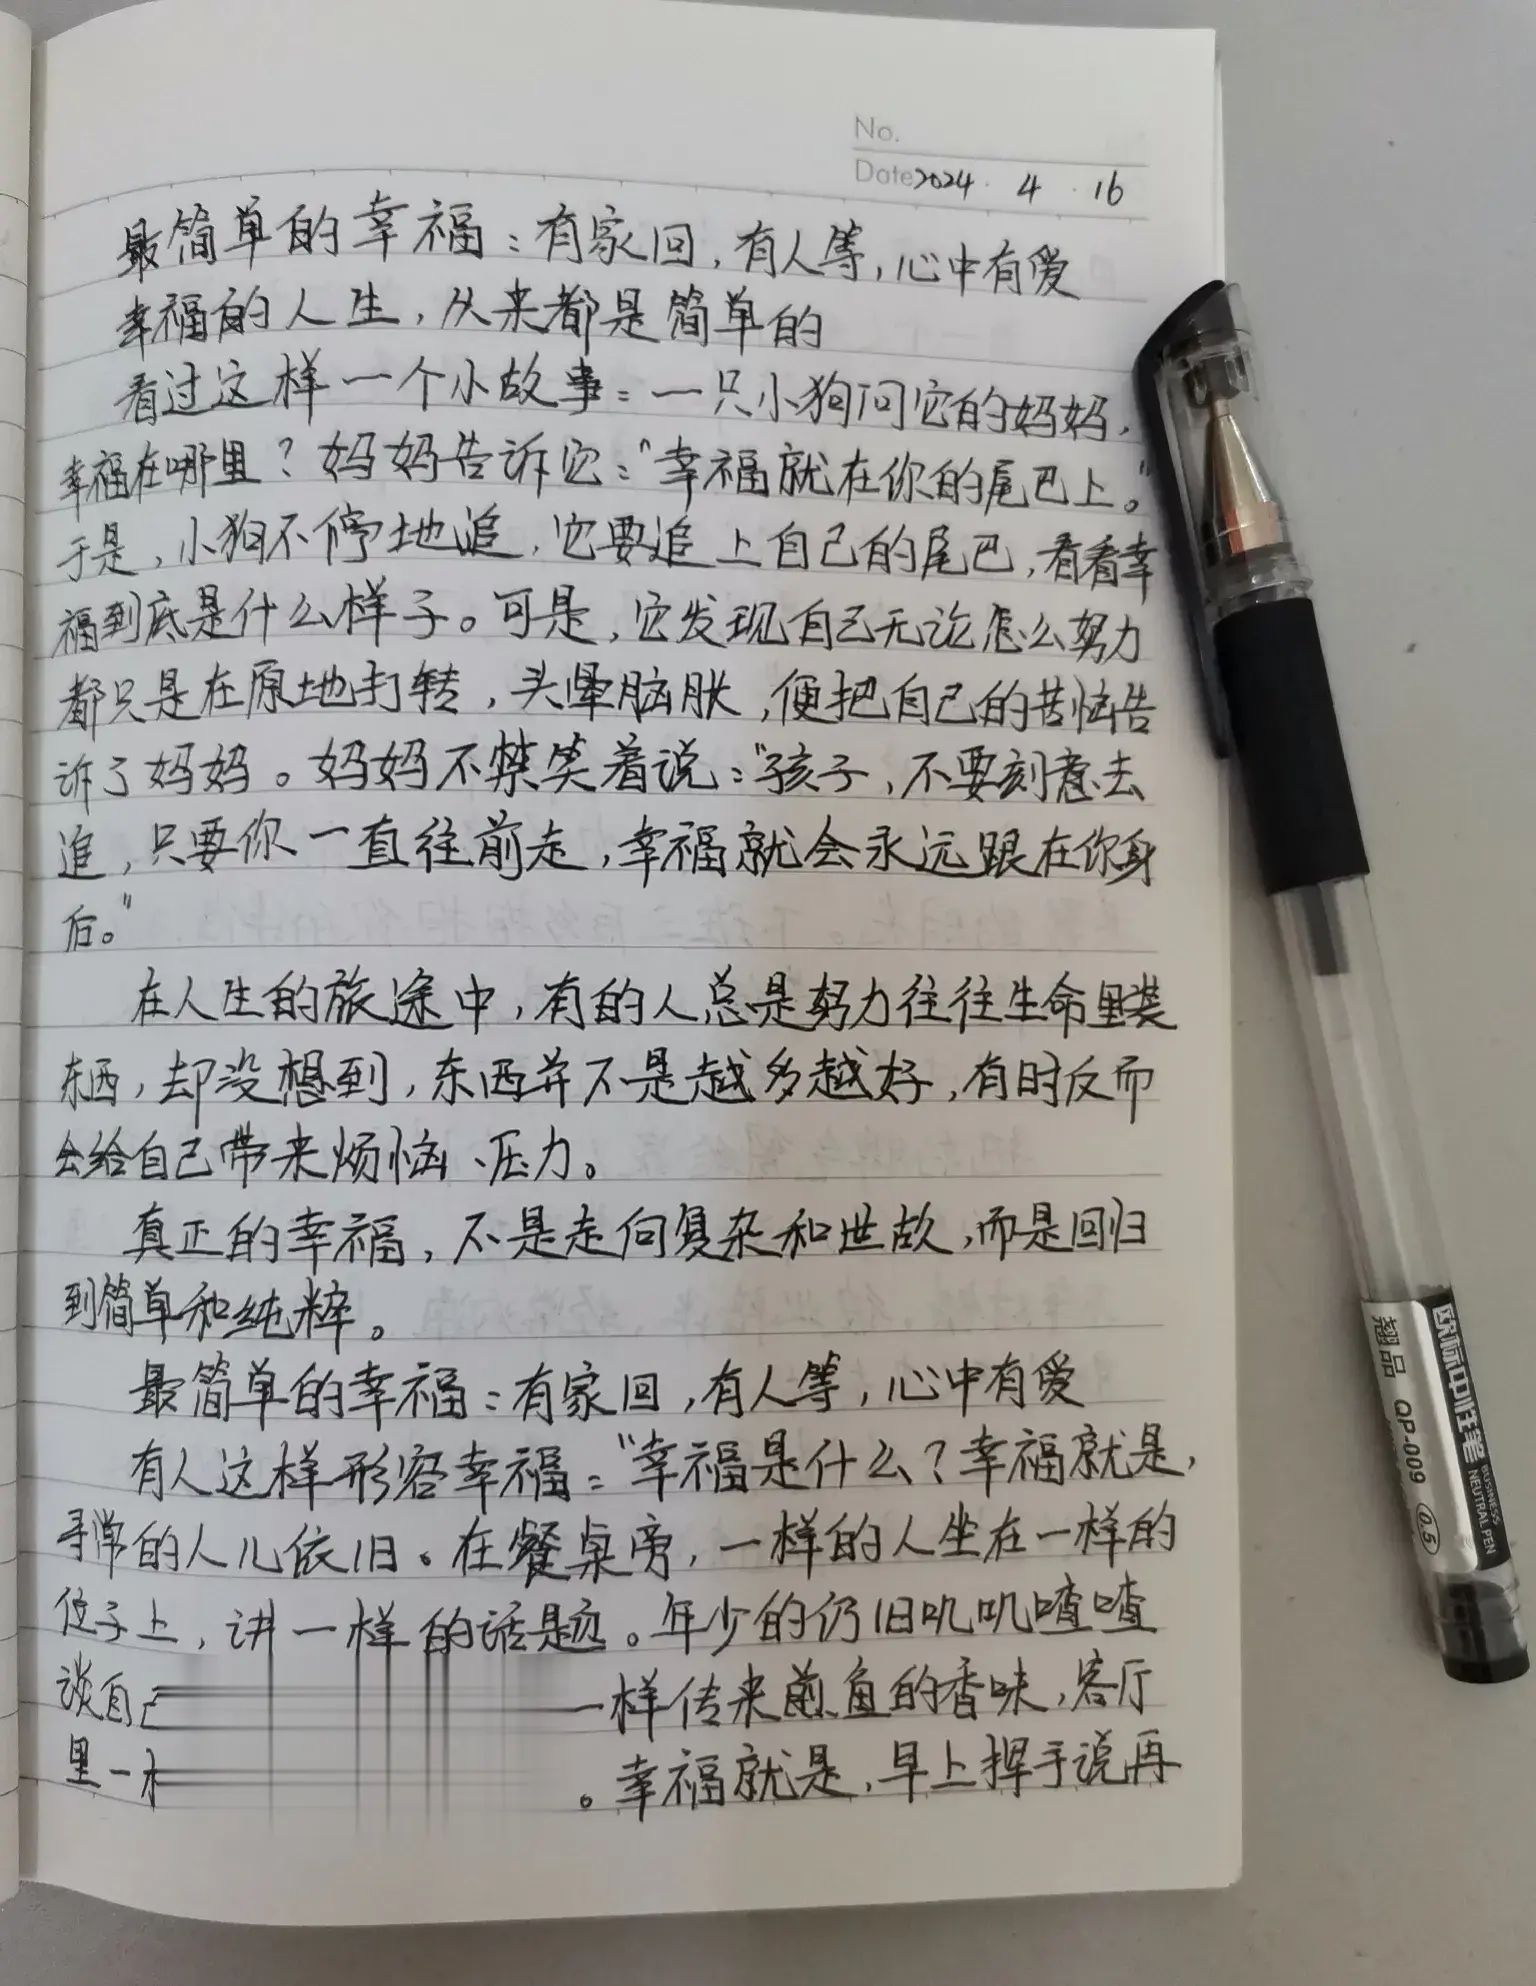 No.
Date 2024 · 4 · 16
最简单的幸福：有家回，有人等，心中有爱
幸福的人生，从来都是简单的
看过这样一个小故事：一只小狗问它的妈妈，
幸福在哪里？妈妈告诉它："幸福就在你的尾巴上。"
于是，小狗不停地追，它要追上自己的尾巴，看看幸
福到底是什么样子。可是，它发现自己无论怎么努力
都只是在原地打转，头晕脑胀，便把自己的苦恼告
诉了妈妈。妈妈不禁笑着说："孩子，不要刻意去
追，只要你一直往前走，幸福就会永远跟在你身
后。"
在人生的旅途中，有的人总是努力往往生命里装
东西，却没想到，东西并不是越多越好，有时反而
会给自己带来烦恼、压力。
真正的幸福，不是走向复杂和世故，而是回归
到简单和纯粹。
最简单的幸福：有家回，有人等，心中有爱
有人这样形容幸福："幸福是什么？幸福就是，
寻常的人儿依旧。在餐桌旁，一样的人坐在一样的
位子上，讲一样的话题。年少的仍旧叽叽喳喳
谈自 一样传来煎鱼的香味，客厅
里一 。幸福就是，早上挥手说再
欧标中性笔
BUSINESS
NEUTRAL PEN
翘品 QP-009 0.5